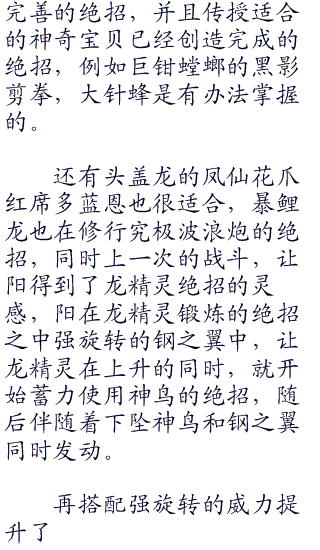 完善的绝招，并且传授适合
的神奇宝贝已经创造完成的
绝招，例如巨钳螳螂的黑影
剪拳，大针蜂是有办法掌握
的。
还有头盖龙的凤仙花爪
红席多蓝恩也很适合，暴鲤
龙也在修行究极波浪炮的绝
招，同时上一次的战斗，让
阳得到了龙精灵绝招的灵
感，阳在龙精灵锻炼的绝招
之中强旋转的钢之翼中，让
龙精灵在上升的同时，就开
始蓄力使用神鸟的绝招，随
后伴随着下坠神鸟和钢之翼
同时发动。
再搭配强旋转的威力提
升了